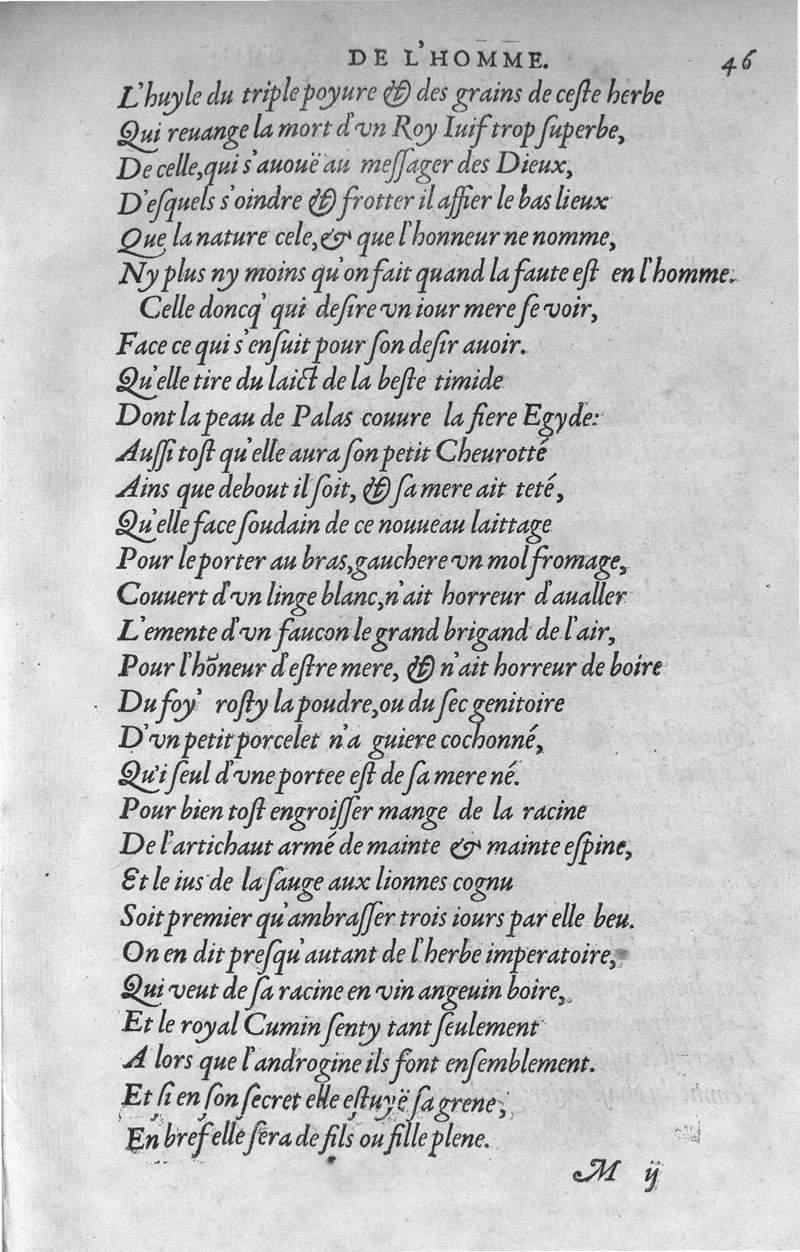 DE L'HOMME. 46
L'huyle du triple poyure & des grains de ceſte herbe
Qui reuange la mort d'vn Roy Iuif trop ſuperbe,
De celle, qui s'auouë au meſſager des Dieux,
D'eſquels s'oindre & frotter il affier le bas lieux
Que la nature cele, & que l'honneur ne nomme,
Ny plus ny moins qu'on fait quand la faute eſt en l'homme.
Celle doncq' qui deſire vn iour mere ſe voir,
Face ce qui s'enſuit pour ſon deſir auoir.
Qu'elle tire du laict de la beſte timide
Dont la peau de Palas couure la fiere Egyde:
Auſſi toſt qu'elle aura ſon petit Cheurotté
Ains que debout il ſoit, & ſa mere ait teté,
Qu'elle face ſoudain de ce nouueau laittage
Pour le porter au bras, gauchere vn mol fromage,
Couuert d'vn linge blanc, n'ait horreur d'aualler
L'emente d'vn faucon le grand brigand de l'air,
Pour l'hõneur d'eſtre mere, & n'ait horreur de boire
Du foy' roſty la poudre, ou du ſec genitoire
D'vn petit porcelet n'a guiere cochonné,
Qu'i ſeul d'vne portee eſt de ſa mere né.
Pour bien toſt engroiſſer mange de la racine
De l'artichaut armé de mainte & mainte eſpine,
Et le ius de la ſauge aux lionnes cognu
Soit premier qu'ambraſſer trois iours par elle beu.
On en dit preſqu'autant de l'herbe imperatoire,
Qui veut de ſa racine en vin angeuin boire,
Et le royal Cumin ſenty tant ſeulement
A lors que l'androgine ils font enſemblement.
Et ſi en ſon ſecret elle eſtuyë ſa grene,
En bref elle ſera de fils ou fille plene.
M ij